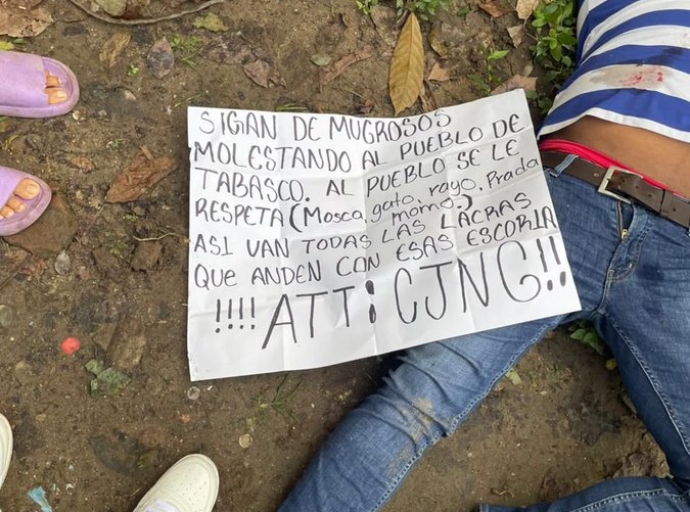 SIGAN DE MUGROSOS
MOLESTANDO AL PUEBLO DE
TABASCO. AL PUEBLO SE LE
RESPETA (Mosca, gato, rayo, Prada
momo.)
ASI VAN TODAS LAS LACRAS
QUE ANDEN CON ESAS ESCORIA
!!!! ATT: CJNG!!